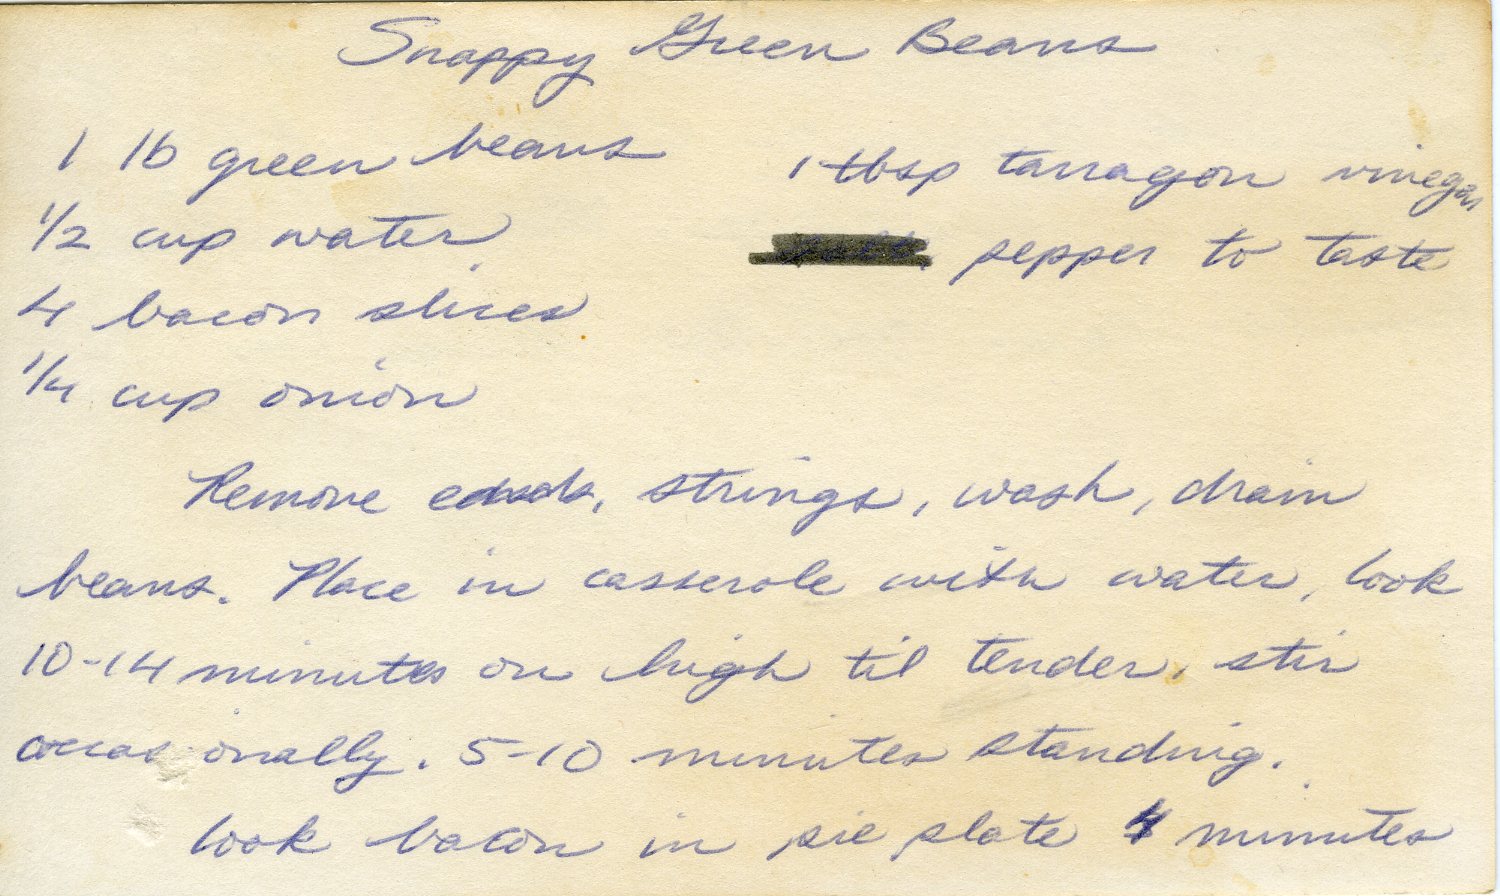 Snappy Green Beans
1 lb green beans
1/2 cup water
4 bacon slices
1/4 cup onion
1 tbsp tarragon vinegar
pepper to taste
Remove ends, strings, wash, drain
beans. Place in casserole with water, Cook
10-14 minutes on high til tender, stir
occasionally. 5-10 minutes standing.
Cook bacon in pie plate 4 minutes